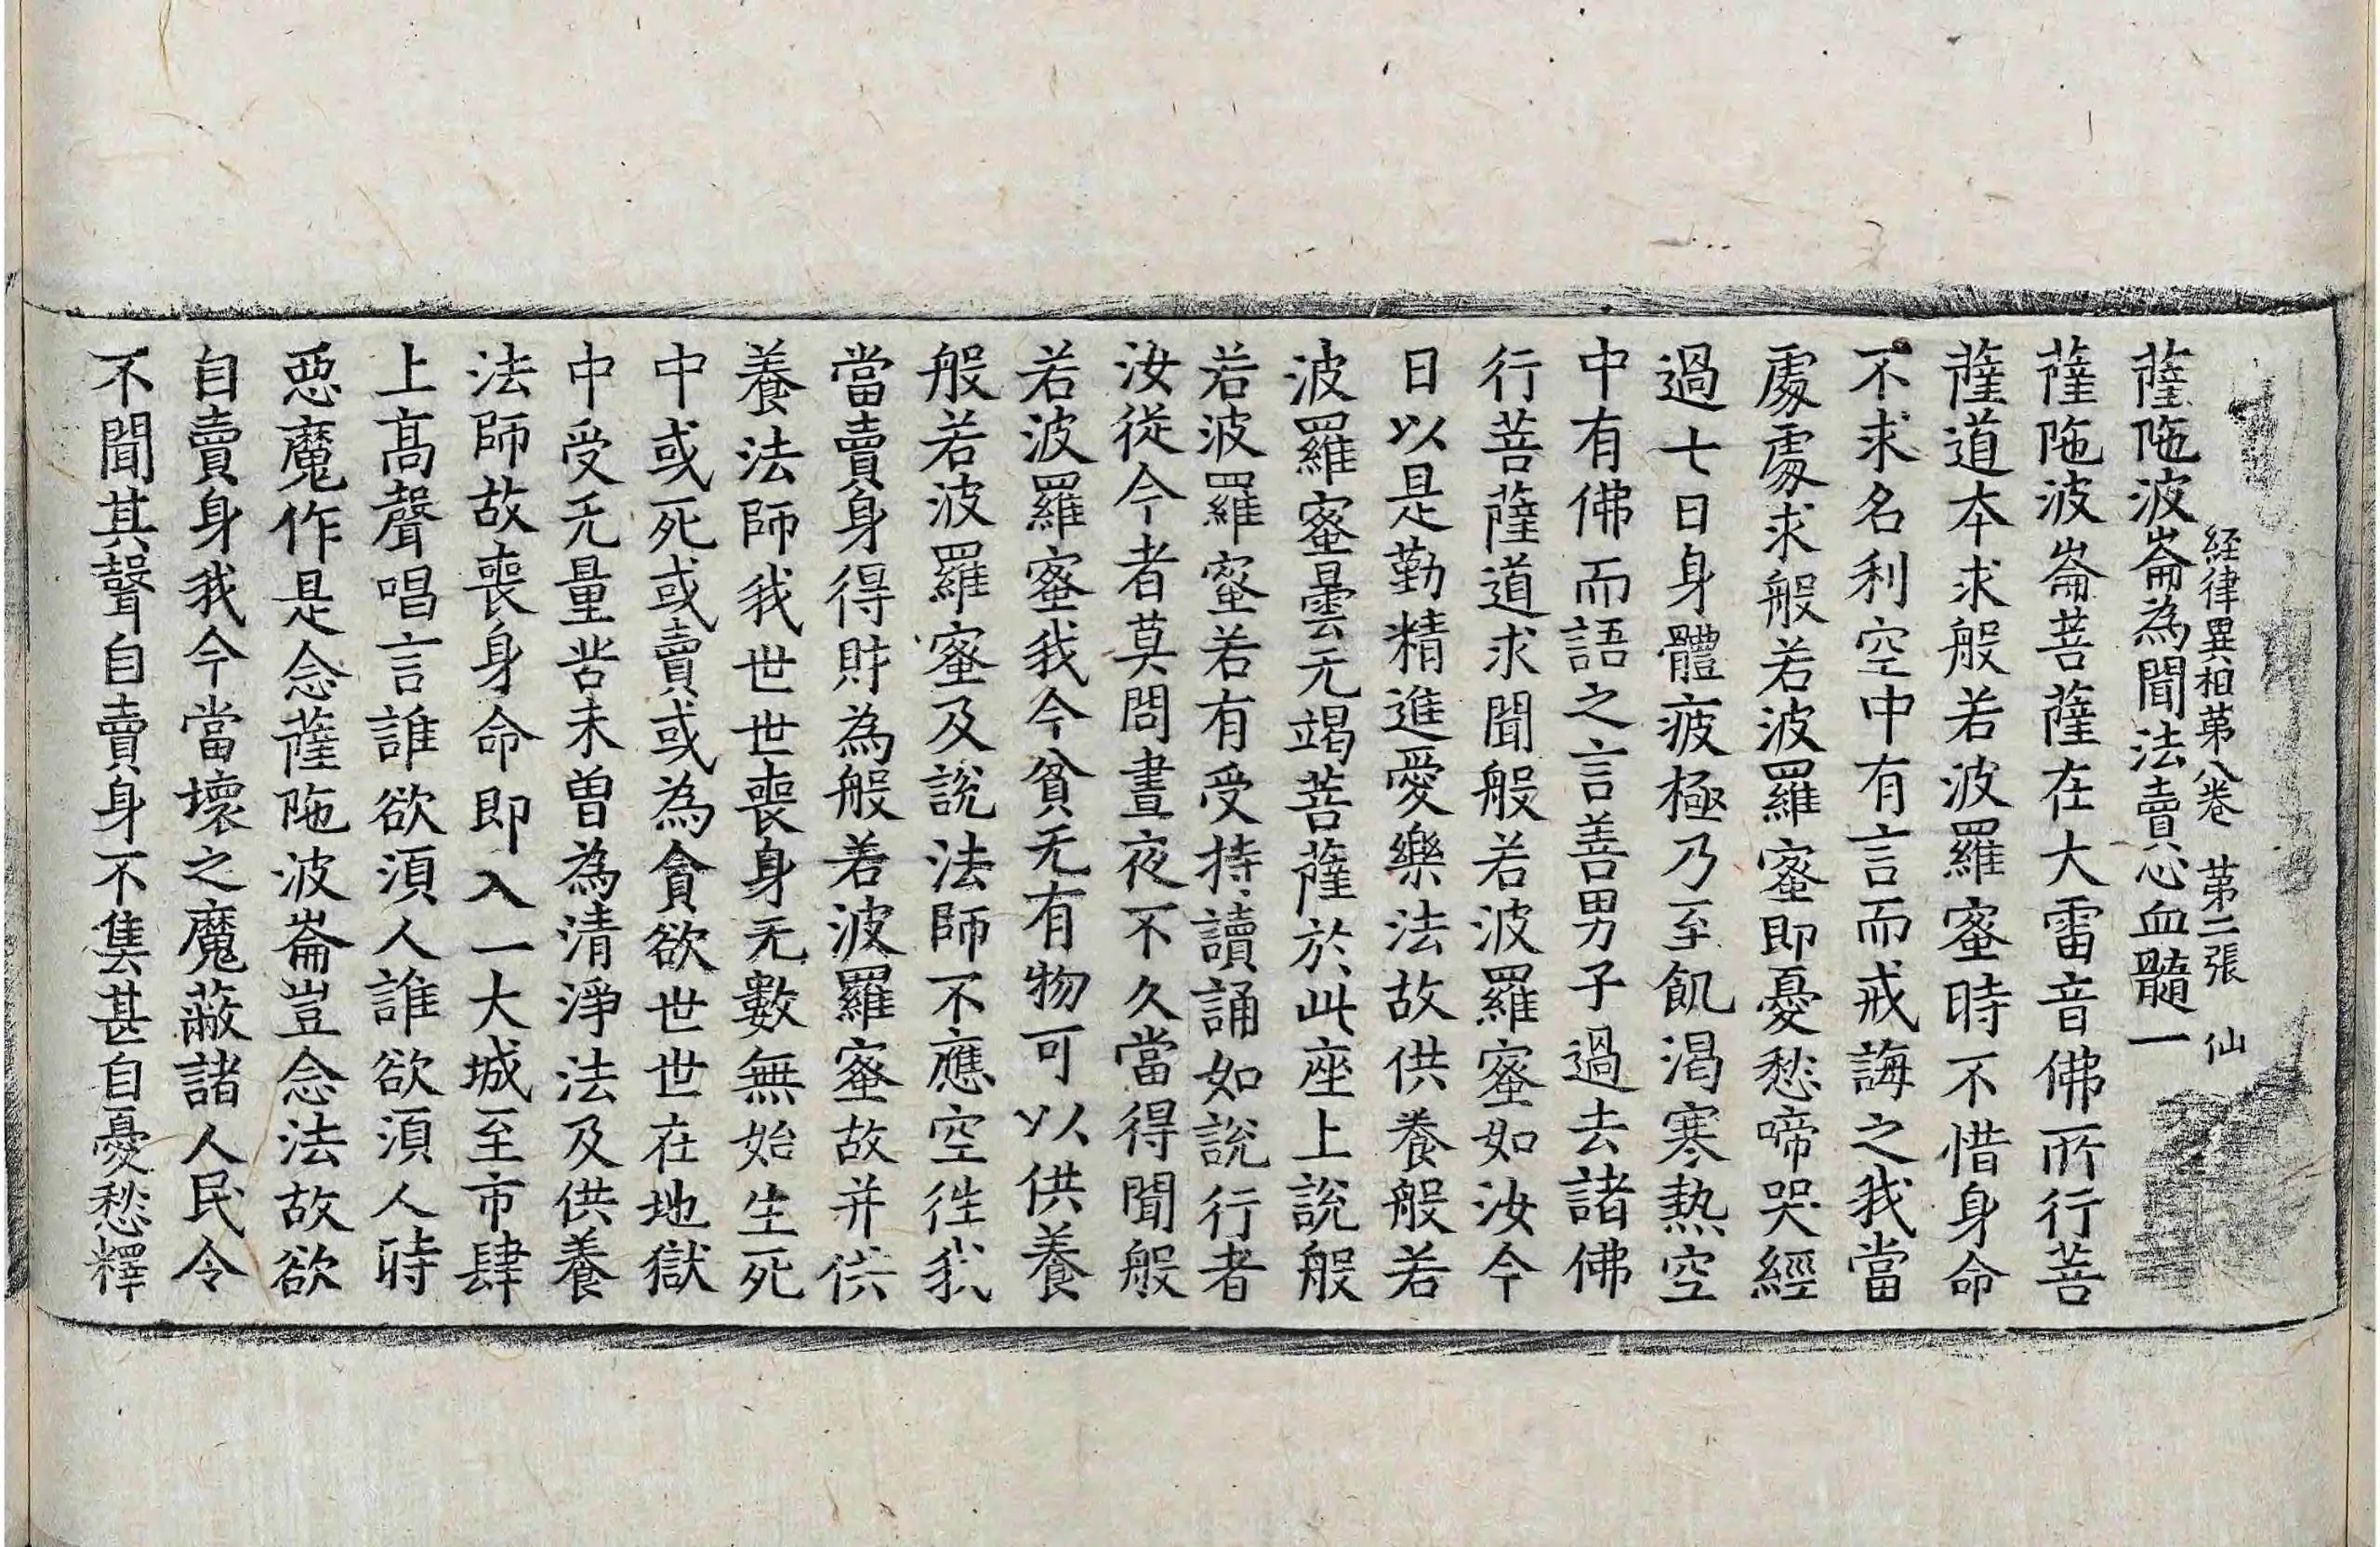 経律異相第八卷　第二張　仙
薩陁波崙為聞法賣心血髓一
薩陁波崙菩薩在大雷音佛所行菩
薩道本求般若波羅蜜時不惜身命
不求名利空中有言而戒誨之我當
處處求般若波羅蜜即憂愁啼哭經
過七日身體疲極乃至飢渴寒熱空
中有佛而語之言善男子過去諸佛
行菩薩道求聞般若波羅蜜如汝今
日以是勤精進愛樂法故供養般若
波羅蜜曇无竭菩薩於此座上說般
若波羅蜜若有受持讀誦如說行者
汝從今者莫問晝夜不久當得聞般
若波羅蜜我今貧无有物可以供養
般若波羅蜜及說法師不應空徃我
當賣身得財為般若波羅蜜故并供
養法師我世世喪身无數無始生死
中或死或賣或為貪欲世世在地獄
中受无量苦未曾為清淨法及供養
法師故喪身命即入一大城至市肆
上髙聲唱言誰欲湏人誰欲湏人時
惡魔作是念薩陁波崙豈念法故欲
自賣身我今當壞之魔蔽諸人民令
不聞其聲自賣身不售甚自憂愁釋